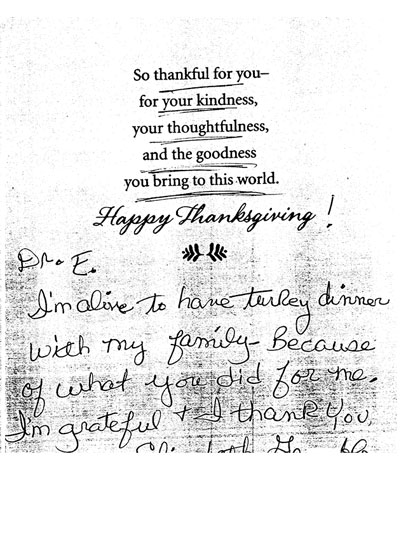 So thankful for you–
for your kindness,
your thoughtfulness,
and the goodness
you bring to this world.
Happy Thanksgiving!
Dr. E.
I'm alive to have turkey dinner
with my family– Because
of what you did for me.
I'm grateful + I thank you,